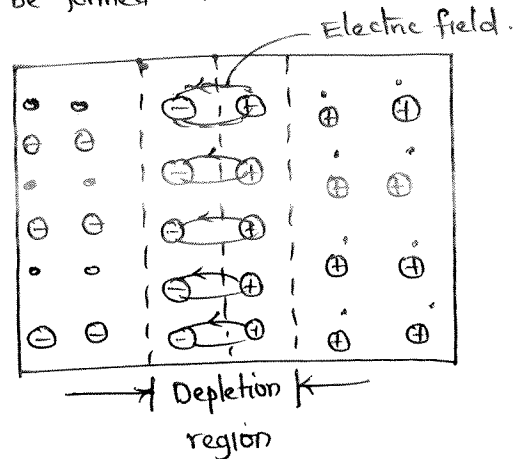 be formed
Electric field.
Depletion
region